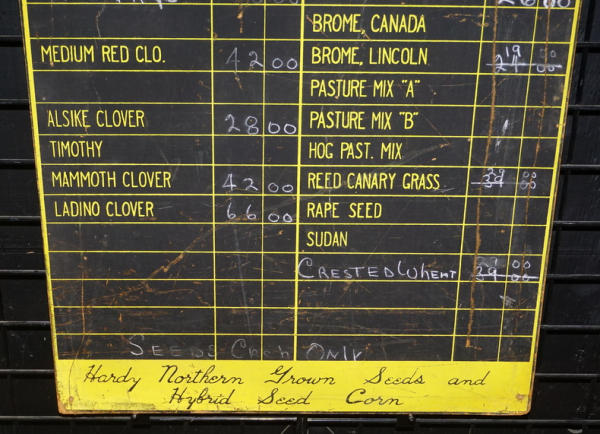 BROME, CANADA
MEDIUM RED CLO. 42 00 BROME, LINCOLN 19
PASTURE MIX "A"
ALSIKE CLOVER 28 00 PASTURE MIX "B"
TIMOTHY HOG PAST. MIX
MAMMOTH CLOVER 42 00 REED CANARY GRASS 39 00
LADINO CLOVER 66 00 RAPE SEED
SUDAN
CRESTED WHEAT 39 00
SEEDS CASH ONLY
Hardy Northern Grown Seeds and
Hybrid Seed Corn